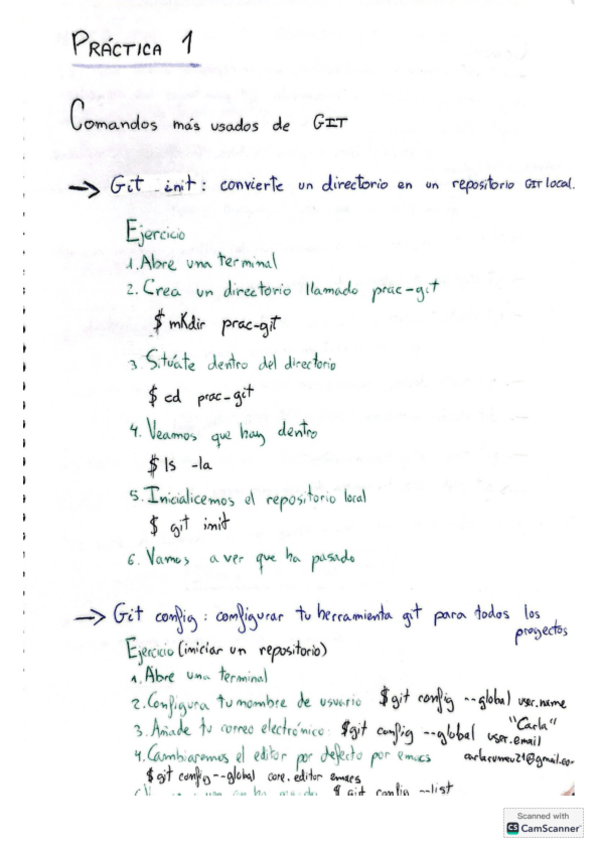 PRÁCTICA 1
Comandos más usados de GIT
→ Git init: convierte un directorio en un repositorio GIT local.
Ejercicio
1. Abre una terminal
2. Crea un directorio llamado prac-git
$ mkdir prac-git
3. Sitúate dentro del directorio
$ cd prac-git
4. Veamos que hay dentro
$ ls -la
5. Inicialicemos el repositorio local
$ git init
6. Vamos a ver que ha pasado
→ Git config: configurar tu herramienta git para todos los
proyectos
Ejercicio (iniciar un repositorio)
1. Abre una terminal
2. Configura tu nombre de usuario $git config --global user.name
"Carla"
3. Añade tu correo electrónico: $git config --global user.email
4. Cambiaremos el editor por defecto por emacs
$ git config --global core.editor emacs
$ git config --list
Scanned with
CS CamScanner